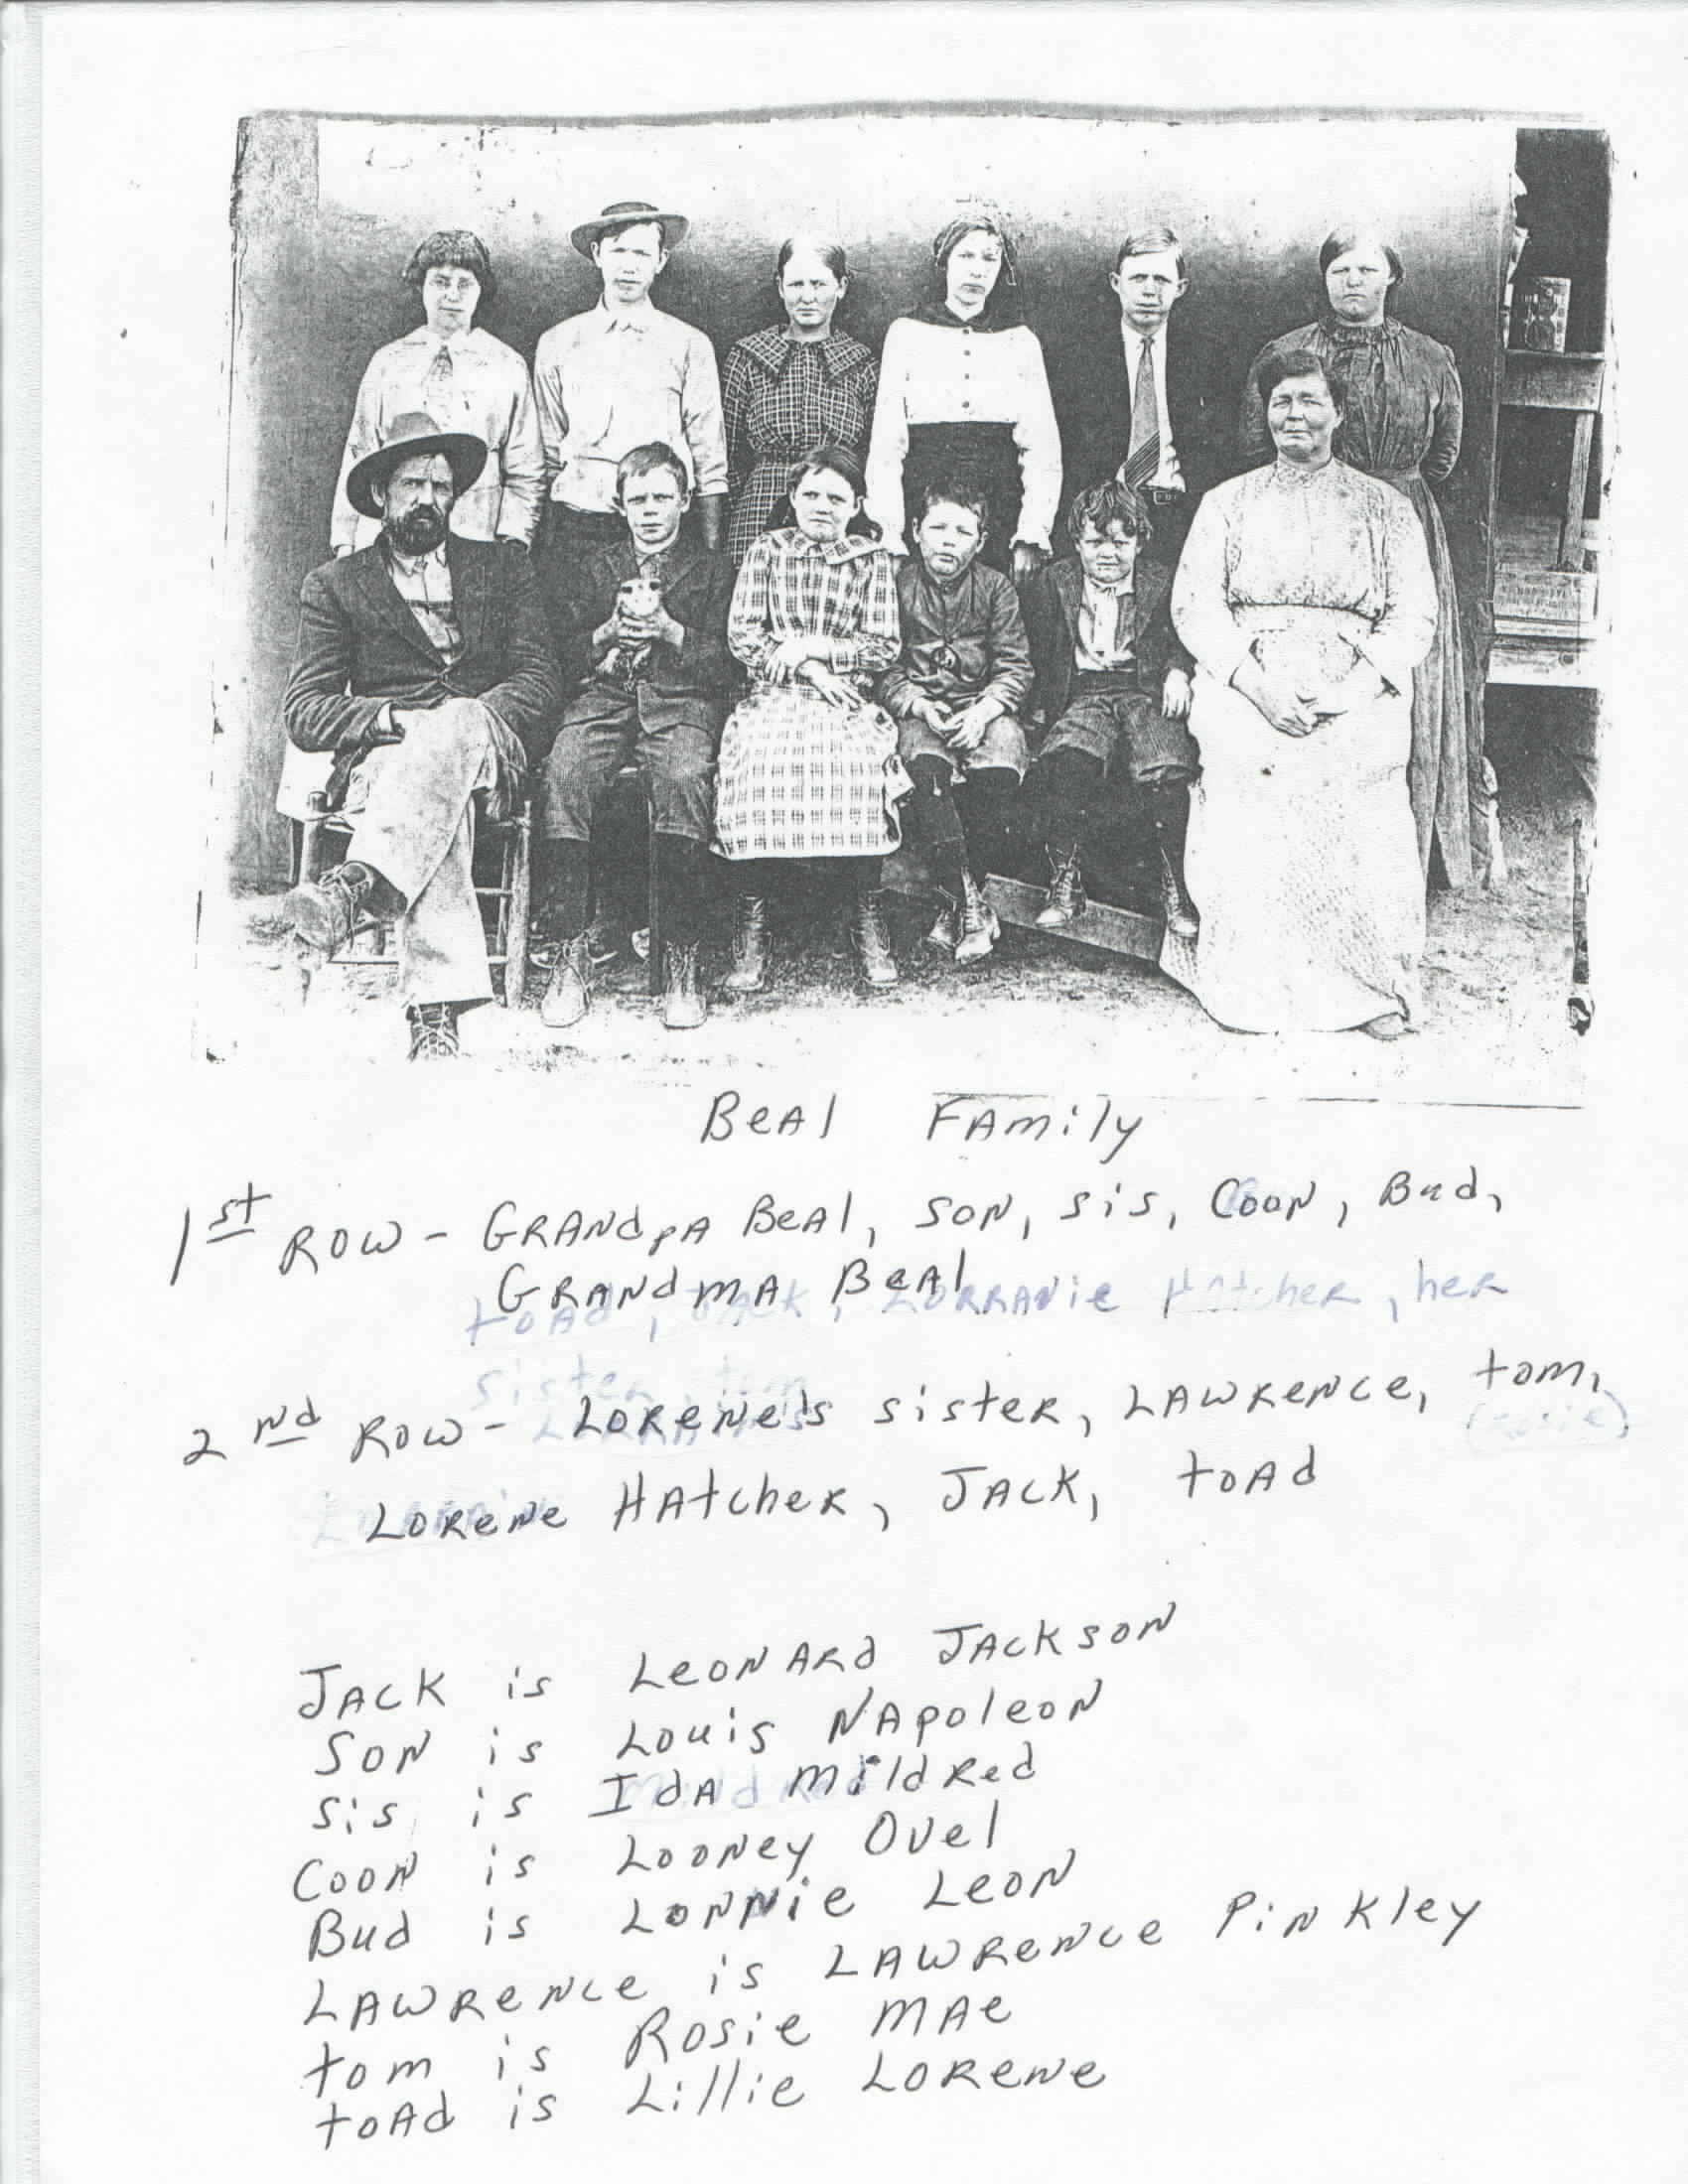 Beal Family
1st Row - Grandpa Beal, Son, Sis, Coon, Bud,
Grandma Beal
toad, Jack, Lorranie Hatcher, her
sister, tom
2nd Row - Lorene's sister, Lawrence, tom,
(Rosie)
Lorene Hatcher, Jack, toad
Jack is Leonard Jackson
Son is Louis Napoleon
Sis is Ida Mildred
Coon is Looney Ovel
Bud is Lonnie Leon
Lawrence is Lawrence Pinkley
tom is Rosie Mae
toad is Lillie Lorene